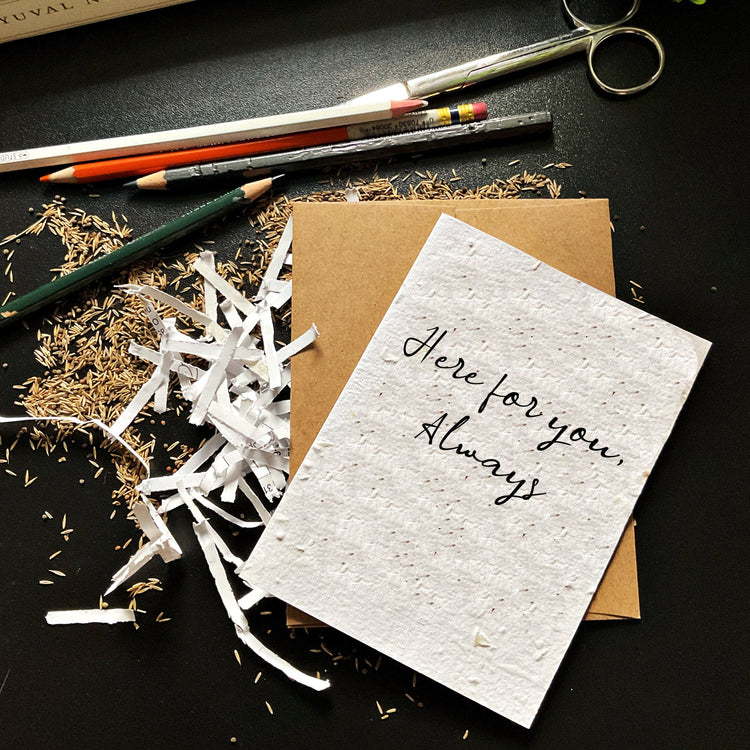 YUVAL N
Here for you,
Always